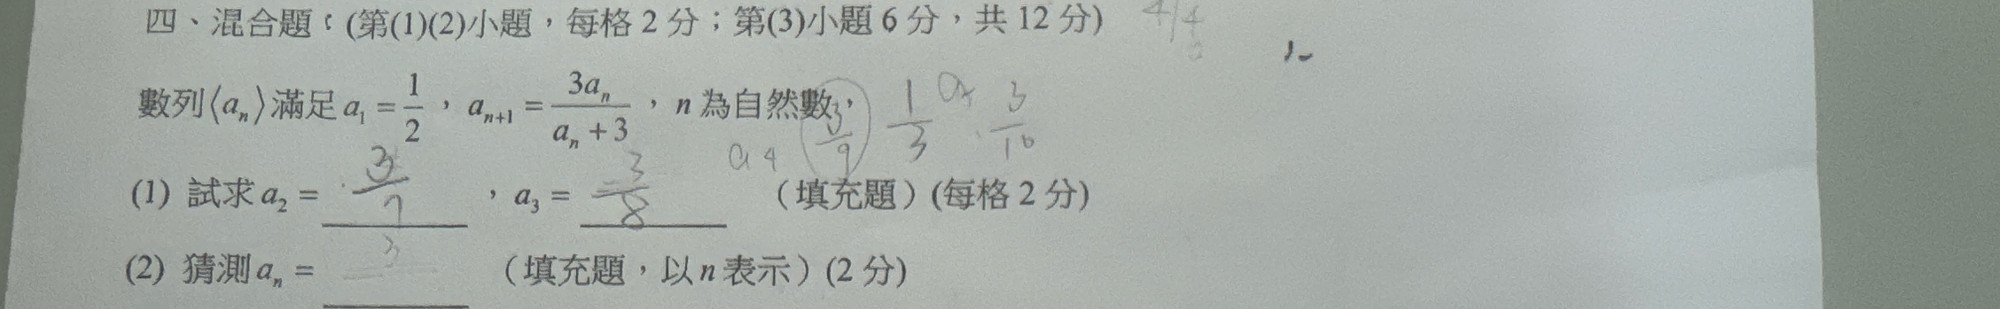 四、混合題：(第(1)(2)小題，每格 2 分；第(3)小題 6 分，共 12 分)
數列⟨aₙ⟩滿足 a₁ = 1/2 ， aₙ₊₁ = 3aₙ/(aₙ + 3) ， n 為自然數， 3/9 1/3 3/10
a4
(1) 試求 a₂ = 3/7 ，a₃ = 3/8 （填充題）(每格 2 分)
(2) 猜測 aₙ = 3 （填充題，以 n 表示）(2 分)